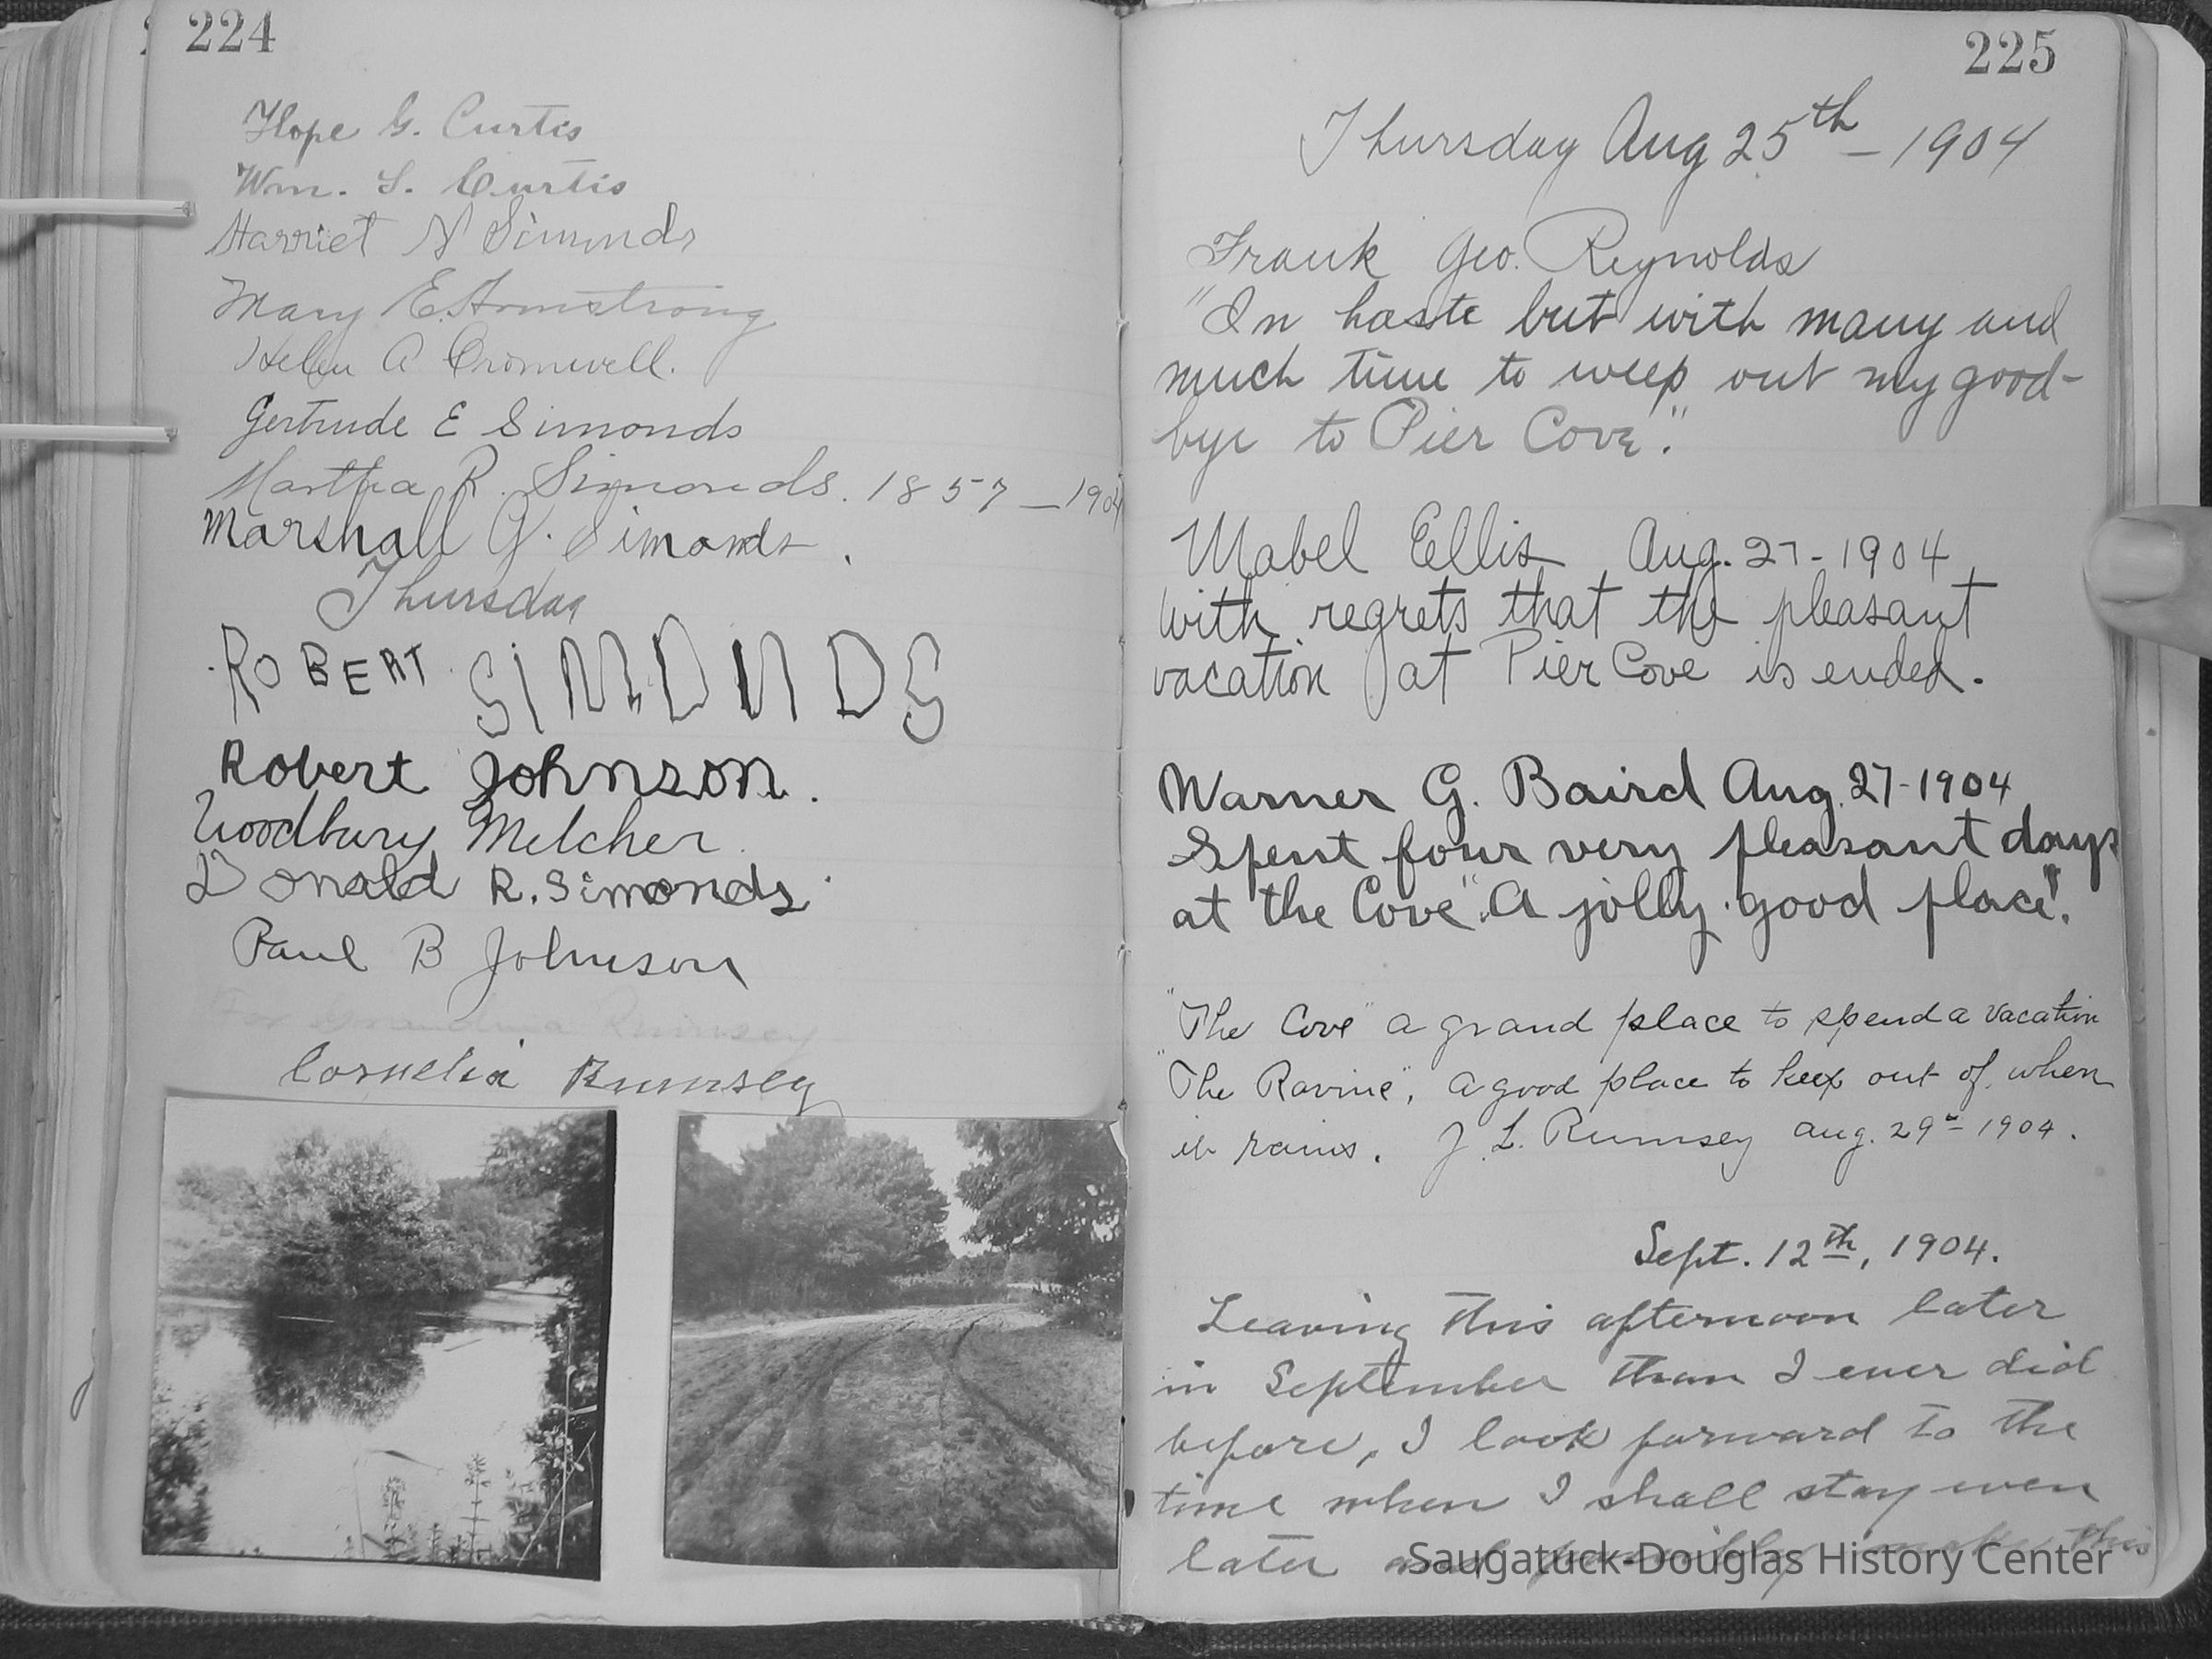 224
Hope G. Curtis
Wm. L. Curtis
Harriet N Simonds
Mary E. Armstrong
Helen A Cromwell.
Gertrude E Simonds
Martha R. Simonds. 1857 – 1904
Marshall G. Simonds.
Thursday
ROBERT SIMONDS
Robert Johnson.
Woodbury Melcher.
Donald R. Simonds.
Paul B Johnson
For Grandma Rumsey
Cornelia Rumsey
225
Thursday Aug 25th – 1904
Frank Geo. Reynolds
"In haste but with many and
much time to weep out my good-
bye to Pier Cove".
Mabel Ellis Aug. 27-1904
With regrets that the pleasant
vacation at Pier Cove is ended.
Warner G. Baird Aug. 27-1904
Spent four very pleasant days
at the Cove". A jolly good place".
"The Cove" a grand place to spend a vacation
"The Ravine", a good place to keep out of, when
it rains. J. L. Rumsey Aug. 29th 1904.
Sept. 12th, 1904.
Leaving this afternoon later
in September than I ever did
before, I look forward to the
time when I shall stay even
later and possibly make this
Saugatuck-Douglas History Center